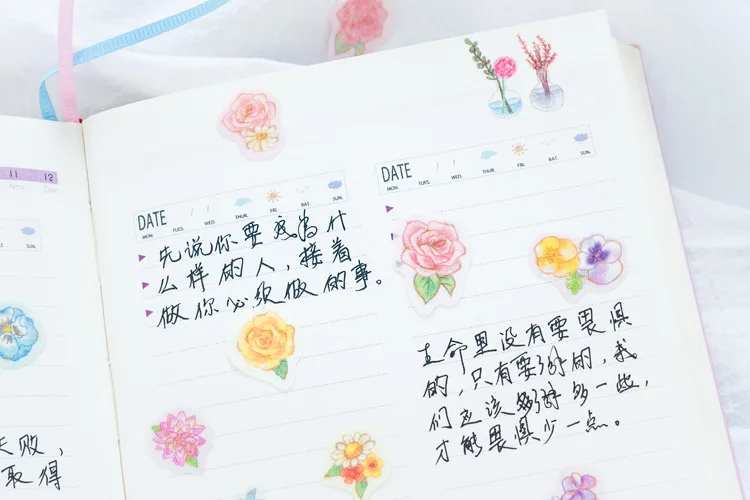 11 12
Nov. Dec
SUN.
败，
取得
DATE / /
MON. TUES. WED. THUR. FRI. SAT. SUN.
先说你要成为什
么样的人，接着
做你必须做的事。
DATE / /
MON. TUES. WED. THUR. FRI. SAT. SUN.
生命里没有要畏惧
的，只有要的，我
们应该多一些，
才能畏惧少一点。